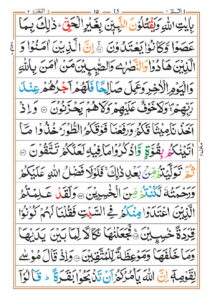 الٓمّٓ ١ 15 ١٥ الْبَقَرَة ٢
بِاٰيٰتِ اللّٰهِ وَيَقْتُلُوْنَ النَّبِيّٖنَ بِغَيْرِ الْحَقِّ ؕ ذٰلِكَ بِمَا
عَصَوْا وَّكَانُوْا يَعْتَدُوْنَ اِنَّ الَّذِيْنَ اٰمَنُوْا وَ
الَّذِيْنَ هَادُوْا وَالنَّصٰرٰى وَالصّٰبِـِٕيْنَ مَنْ اٰمَنَ بِاللّٰهِ
وَالْيَوْمِ الْاٰخِرِ وَعَمِلَ صَالِحًا فَلَهُمْ اَجْرُهُمْ عِنْدَ
رَبِّهِمْ وَلَا خَوْفٌ عَلَيْهِمْ وَلَا هُمْ يَحْزَنُوْنَ وَاِذْ
اَخَذْنَا مِيْثَاقَكُمْ وَرَفَعْنَا فَوْقَكُمُ الطُّوْرَ ؕ خُذُوْا مَآ
اٰتَيْنٰكُمْ بِقُوَّةٍ وَّاذْكُرُوْا مَا فِيْهِ لَعَلَّكُمْ تَتَّقُوْنَ
ثُمَّ تَوَلَّيْتُمْ مِّنْۢ بَعْدِ ذٰلِكَ ۚ فَلَوْلَا فَضْلُ اللّٰهِ عَلَيْكُمْ
وَرَحْمَتُهٗ لَكُنْتُمْ مِّنَ الْخٰسِرِيْنَ وَلَقَدْ عَلِمْتُمُ
الَّذِيْنَ اعْتَدَوْا مِنْكُمْ فِى السَّبْتِ فَقُلْنَا لَهُمْ كُوْنُوْا
قِرَدَةً خٰسِـِٕيْنَ فَجَعَلْنٰهَا نَكَالًا لِّمَا بَيْنَ يَدَيْهَا
وَمَا خَلْفَهَا وَمَوْعِظَةً لِّلْمُتَّقِيْنَ وَاِذْ قَالَ مُوْسٰى
لِقَوْمِهٖٓ اِنَّ اللّٰهَ يَاْمُرُكُمْ اَنْ تَذْبَحُوْا بَقَرَةً ؕ قَالُوْٓا